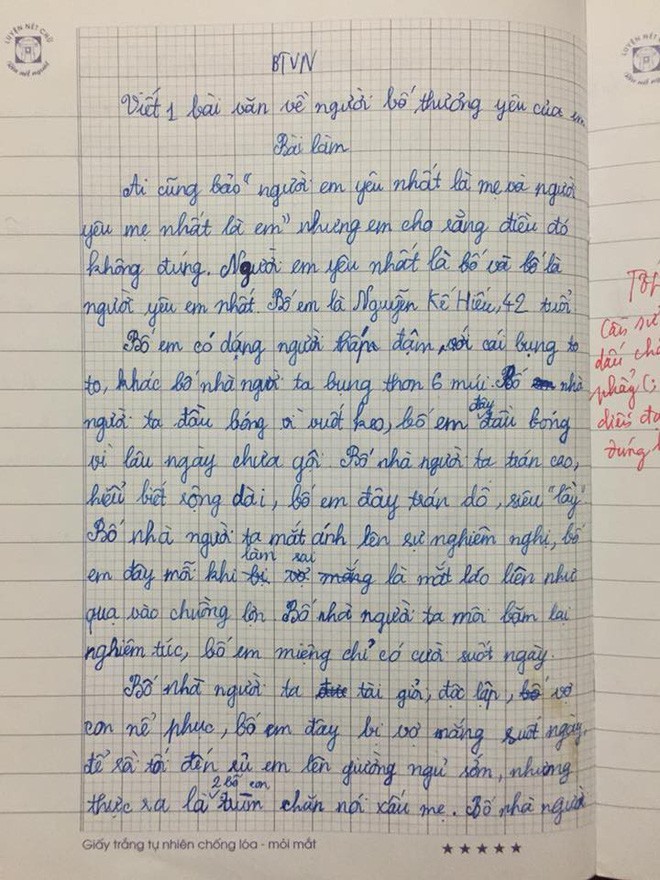 LUYỆN NÉT CHỮ
Rèn nết người
LUYỆN NÉT
BTVN
Viết 1 bài văn về người bố thương yêu của em
Bài làm
Ai cũng bảo "người em yêu nhất là mẹ và người
yêu mẹ nhất là em" nhưng em cho rằng điều đó
không đúng. Người em yêu nhất là bố và bố là
người yêu em nhất. Bố em là Nguyễn Kế Hiếu, 42 tuổi.
Bố em có dáng người thấp đậm, với cái bụng to
to, khác bố nhà người ta bụng thon 6 múi. Bố nhà
người ta đầu bóng vì vuốt keo, bố em đây đầu bóng
vì lâu ngày chưa gội. Bố nhà người ta trán cao,
hiểu biết rộng dài, bố em đây trán dô, siêu "lầy"
Bố nhà người ta mắt ánh lên sự nghiêm nghị, bố
em đây mỗi khi bị vợ mắng làm sai là mắt láo liên như
quạ vào chuồng lợn. Bố nhà người ta môi bặm lại
nghiêm túc, bố em miệng chỉ có cười suốt ngày.
Bố nhà người ta tài giỏi, độc lập, vợ
con nể phục, bố em đây bị vợ mắng suốt ngày,
để rồi tối đến rủ em lên giường ngủ sớm, nhưng
thực ra là 2 bố con trùm chăn nói xấu mẹ. Bố nhà người
Giấy trắng tự nhiên chống lóa - mỏi mắt
★★★★★
Cần sử
dấu